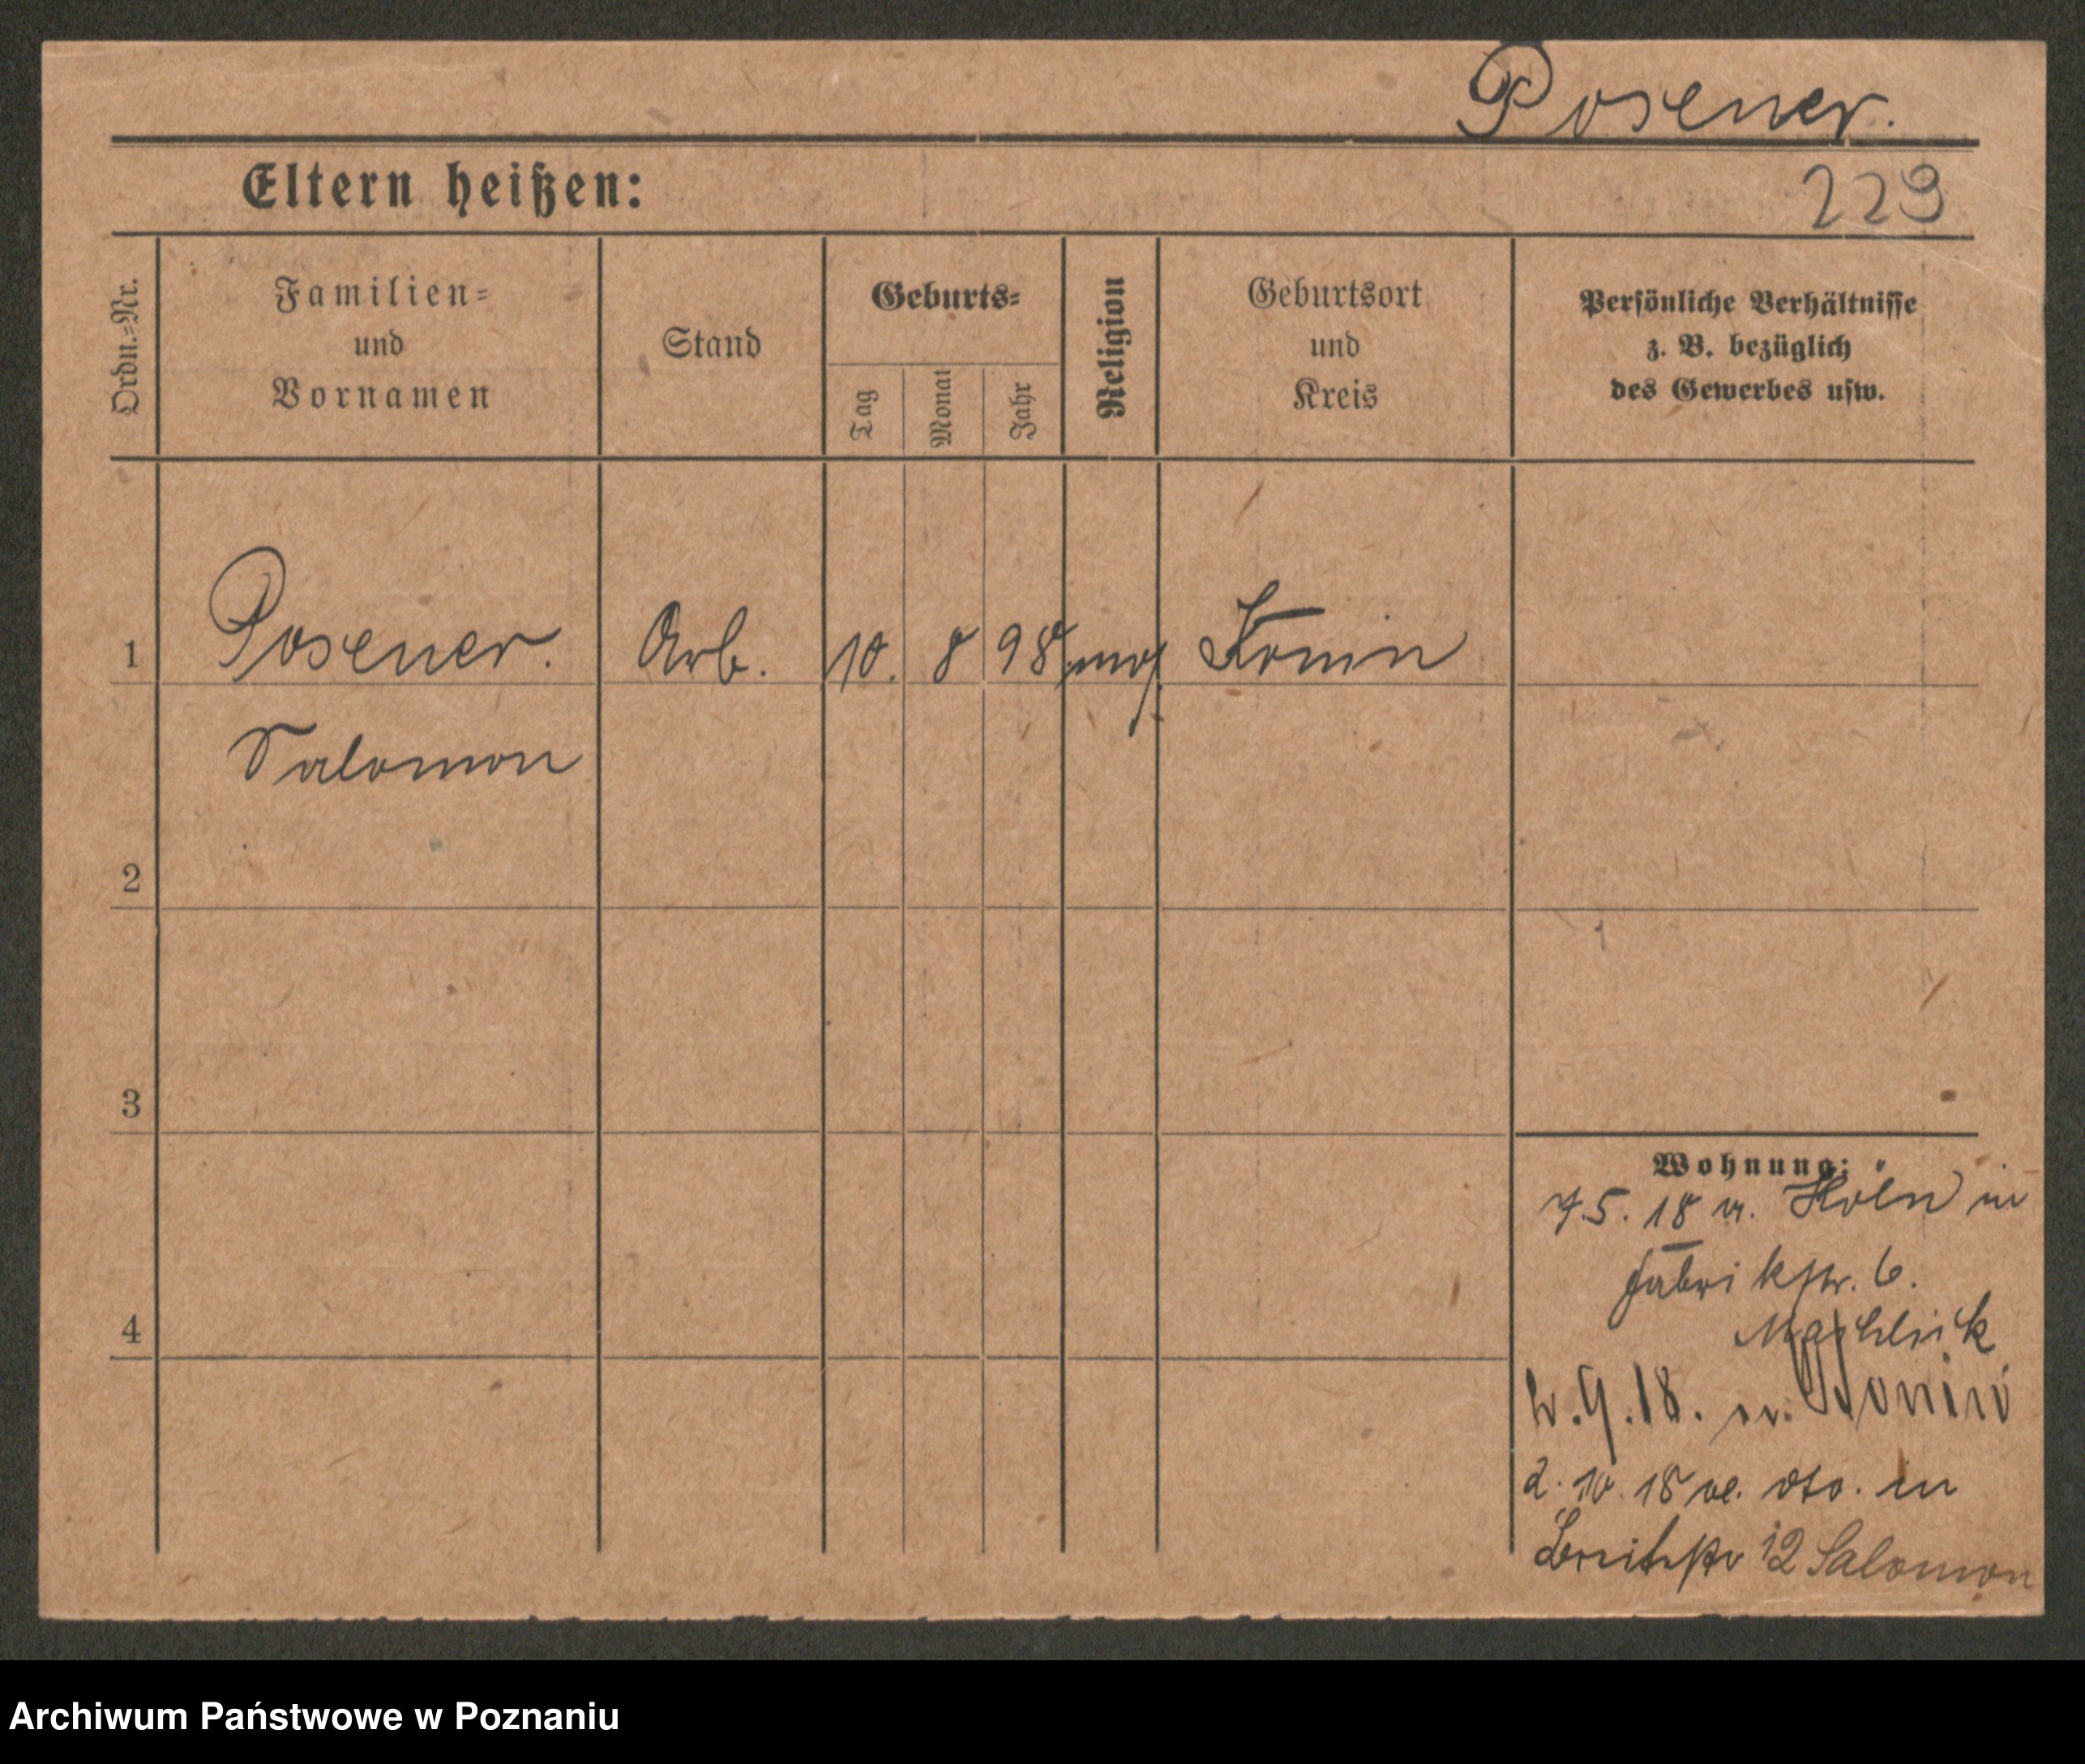 Posener.
Eltern heißen:
229
Ordn.=Nr.
Familien=
und
Vornamen
Stand
Geburts=
Tag
Monat
Jahr
Religion
Geburtsort
und
Kreis
Persönliche Verhältnisse
z. B. bezüglich
des Gewerbes usw.
1
Posener.
Arb.
10.
8
98
mos
Konin
Salomon
2
3
4
Wohnung:
7.5.18 v. Köln in
Fabrikstr. 6.
.9.18. n. Konin
2.10.18 v. dto. in
Breitestr 12 Salomon
Archiwum Państwowe w Poznaniu